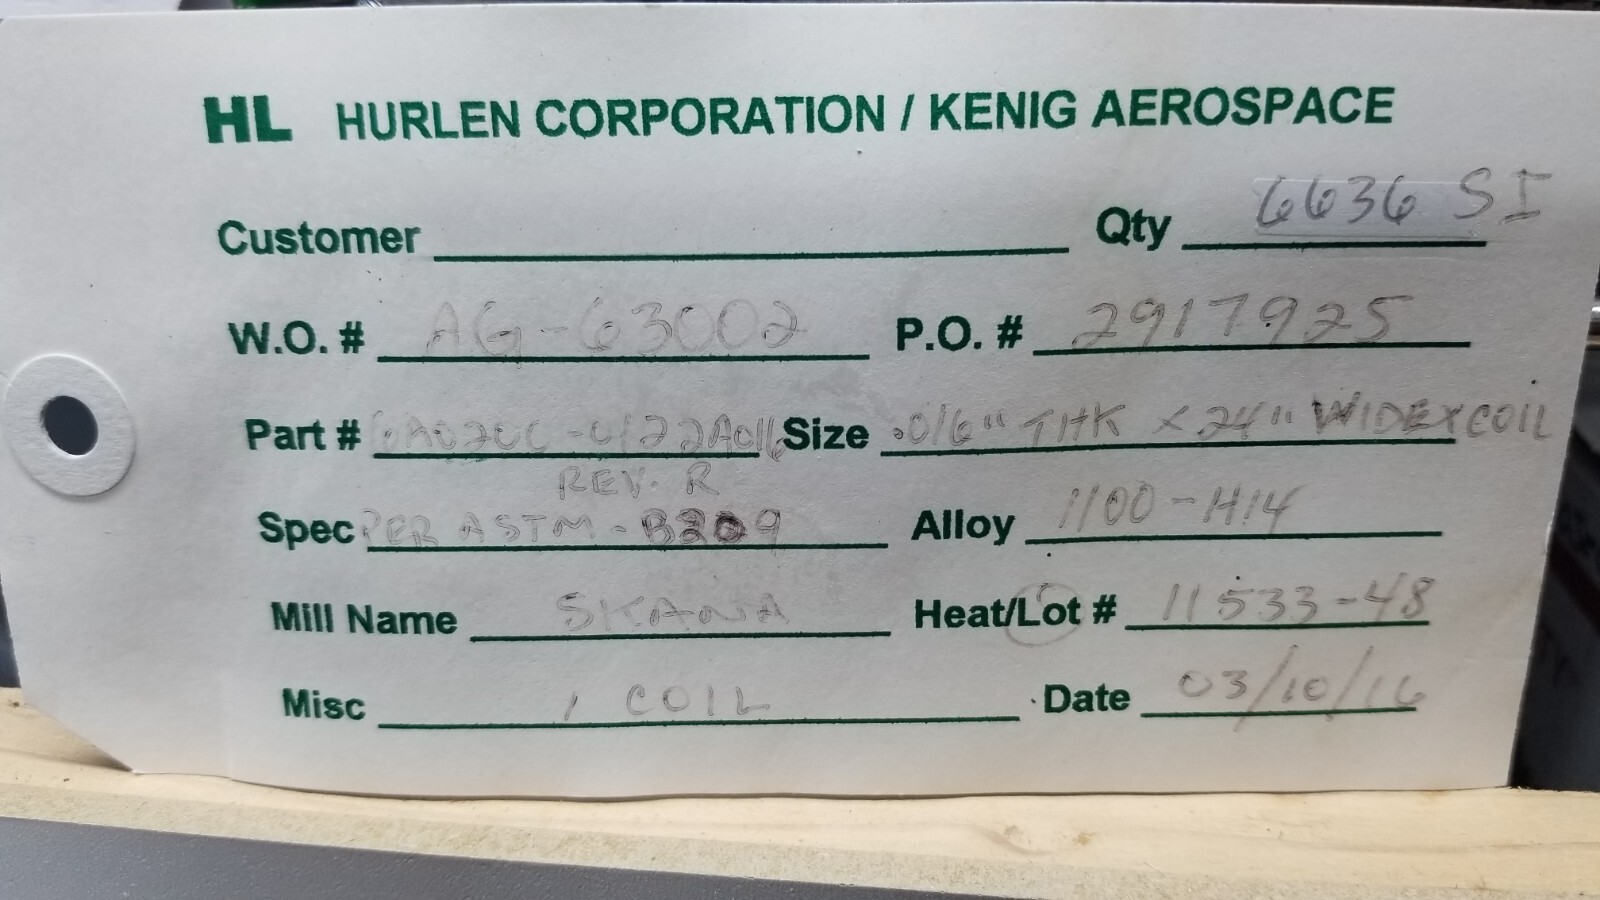 HL HURLEN CORPORATION / KENIG AEROSPACE
Customer Qty 6636 SI
W.O. # AG-63002 P.O. # 2917925
Part # Size .016" THK X 24" WIDE X COIL
REV. R
Spec PER ASTM-B209 Alloy 1100-H14
Mill Name SKANA Heat/Lot # 11533-48
Misc 1 COIL Date 03/10/16